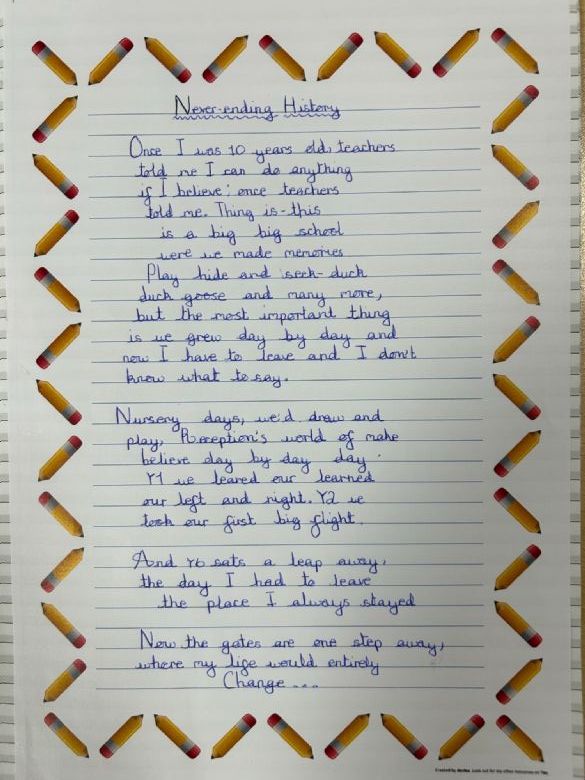 Never-ending History
Once I was 10 years old, teachers
told me I can do anything
if I believe; once teachers
told me. Thing is - this
is a big big school
were we made memories
Play hide and seek - duck
duck goose and many more,
but the most important thing
is we grew day by day and
now I have to leave and I don't
know what to say.
Nursery days, we'd draw and
play, Reception's world of make
believe day by day day.
Y1 we leared our learned
our left and right. Y2 we
took our first big flight.
And Y6 sats a leap away,
the day I had to leave
the place I always stayed
Now the gates are one step away,
where my life would entirely
Change ...
Created by Books. Look out for my other resources on Tes.